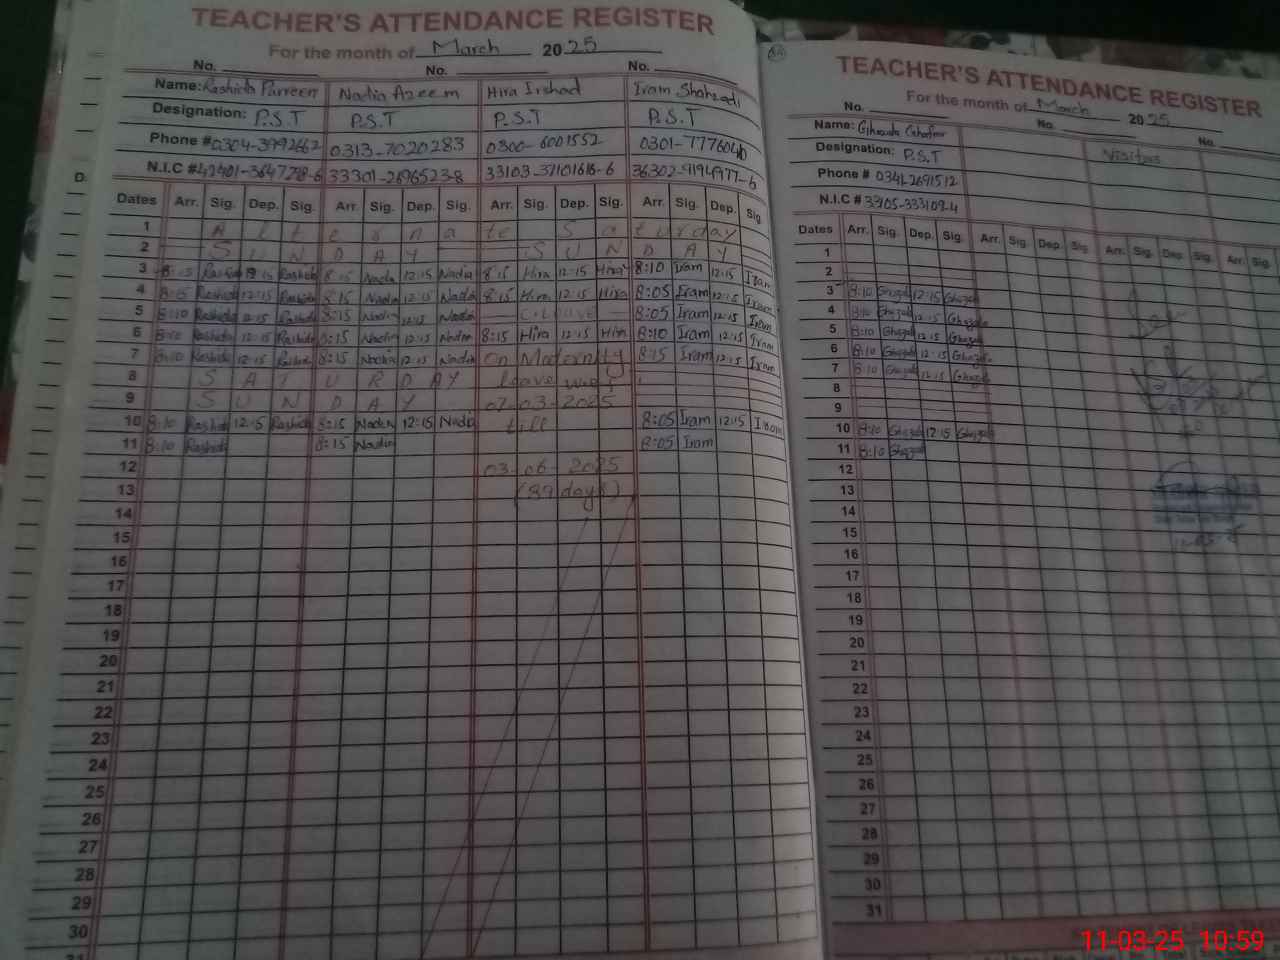 TEACHER'S ATTENDANCE REGISTER
For the month of March 2025
No. No. No.
Name: Rashida Parveen Nadia Azeem Hira Irshad Iram Shahzadi
Designation: P.S.T P.S.T P.S.T P.S.T
Phone # 0304-3992662 0313-7020283 0300-6001552 0301-7776040
N.I.C # 33301-2696523-8 33103-3710168-6 36302-9194977-6
Dates Arr. Sig. Dep. Sig. Arr. Sig. Dep. Sig. Arr. Sig. Dep. Sig. Arr. Sig. Dep. Sig.
1 Alternate Saturday
2 SUNDAY SUNDAY
3 8:15 Rashida 12:15 Rashida 8:15 Nadia 12:15 Nadia 8:15 Hira 12:15 Hira 8:10 Iram 12:15 Iram
4 8:15 Rashida 12:15 Rashida 8:15 Nadia 12:15 Nadia 8:15 Hira 12:15 Hira 8:05 Iram 12:15 Iram
5 8:10 Rashida 12:15 Rashida 8:15 Nadia 12:15 Nadia C.Leave 8:05 Iram 12:15 Iram
6 8:10 Rashida 12:15 Rashida 8:15 Nadia 12:15 Nadia 8:15 Hira 12:15 Hira 8:10 Iram 12:15 Iram
7 8:10 Rashida 12:15 Rashida 8:15 Nadia 12:15 Nadia On Maternity 8:15 Iram 12:15 Iram
8 SATURDAY leave w.e.f
9 SUNDAY 07-03-2025
10 8:10 Rashida 12:15 Rashida 8:15 Nadia 12:15 Nadia till 8:05 Iram 12:15 Iram
11 8:10 Rashida 8:15 Nadia 8:05 Iram
12 03-06-2025
13 (89 days)
14
15
16
17
18
19
20
21
22
23
24
25
26
27
28
29
30
31
TEACHER'S ATTENDANCE REGISTER
For the month of March 2025
No. No. No.
Name: Ghazala Ghafoor
Designation: P.S.T Visitors
Phone # 0341-2691512
N.I.C # 33105-333109-4
Dates Arr. Sig. Dep. Sig. Arr. Sig. Dep. Sig. Arr. Sig. Dep. Sig. Arr. Sig.
1
2
3 8:10 Ghazala 12:15 Ghazala
4 8:10 Ghazala 12:15 Ghazala
5 8:10 Ghazala 12:15 Ghazala
6 8:10 Ghazala 12:15 Ghazala
7 8:10 Ghazala 12:15 Ghazala
8
9
10 8:10 Ghazala 12:15 Ghazala
11 8:10 Ghazala
12
13
14
15
16
17
18
19
20
21
22
23
24
25
26
27
28
29
30
31
11-03-25 10:59